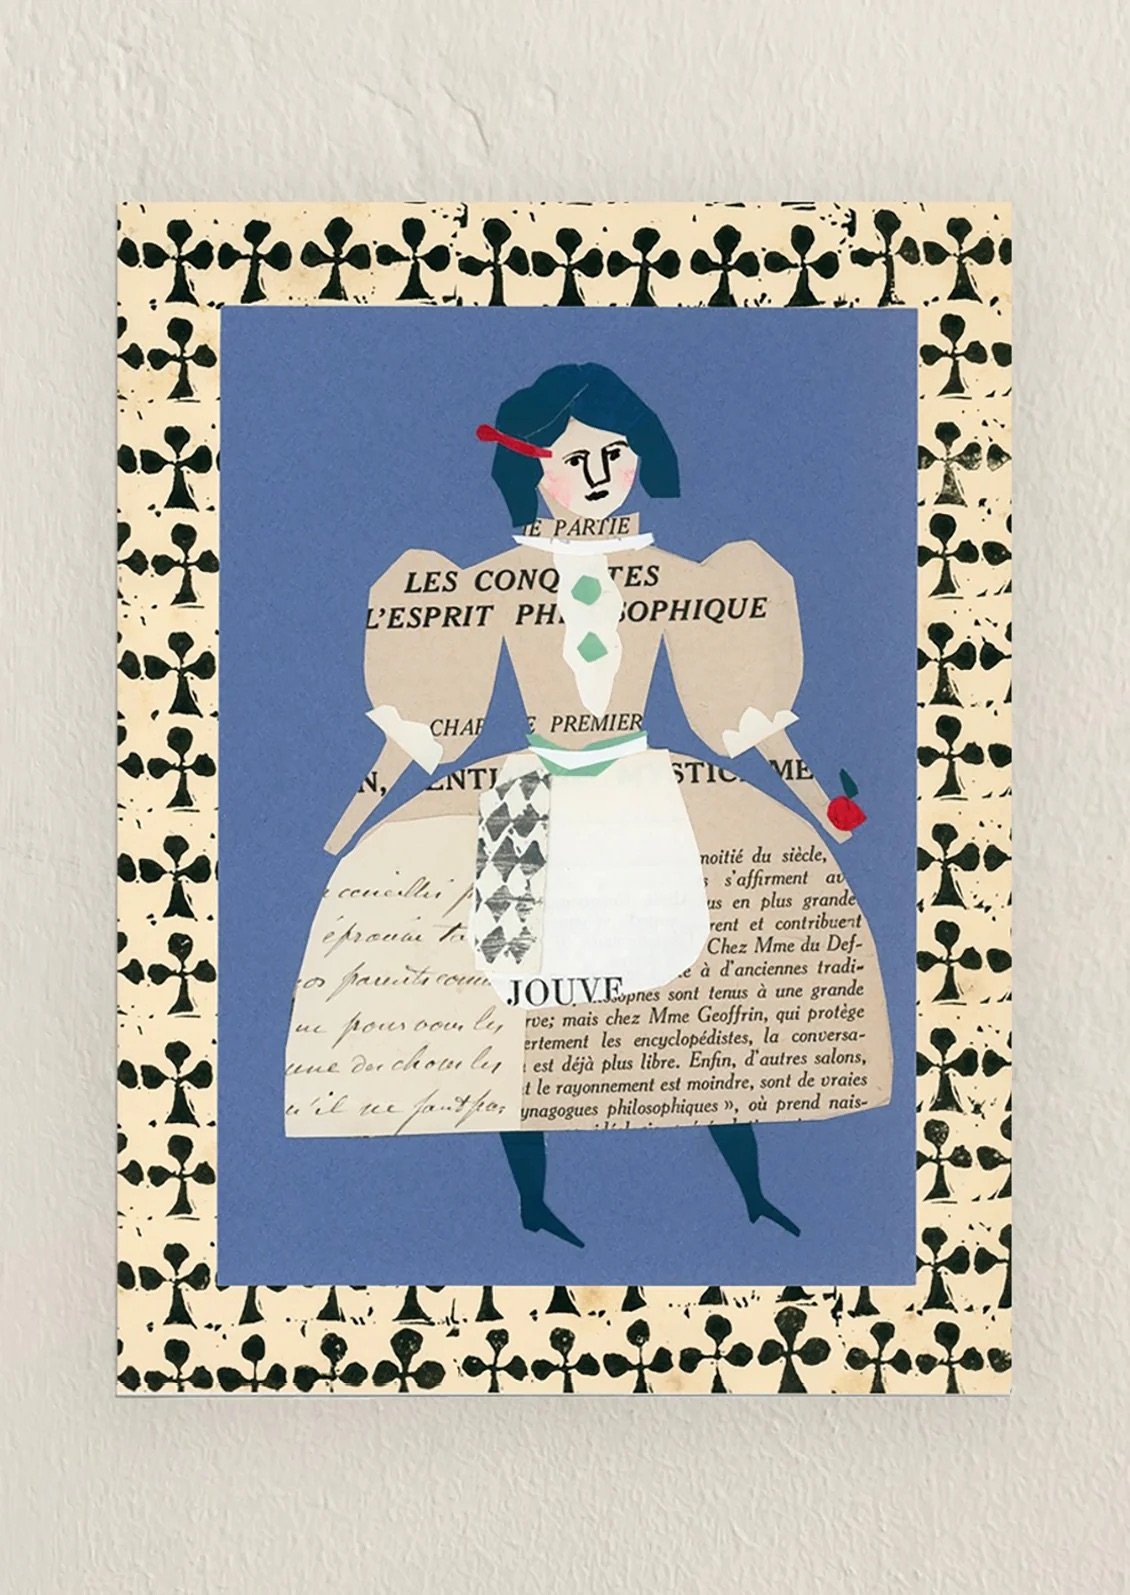 IE PARTIE
LES CONQ TES
L'ESPRIT PHI SOPHIQUE
CHAP E PREMIER
N, ENTI STIC ME
moitié du siècle,
s s'affirment av
us en plus grande
rent et contribuent
Chez Mme du Def-
te à d'anciennes tradi-
JOUVE
sophes sont tenus à une grande
rve; mais chez Mme Geoffrin, qui protège
ertement les encyclopédistes, la conversa-
est déjà plus libre. Enfin, d'autres salons,
t le rayonnement est moindre, sont de vraies
ynagogues philosophiques », où prend nais-
recueilli p
éprouve ta
os parents comm
pour vous les
une des choses les
u'il ne faut pas